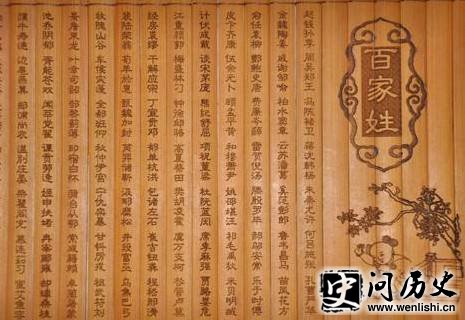 百家姓
赵钱孙李 周吴郑王 冯陈褚卫 蒋沈韩杨 朱秦尤许 何吕施张 孔曹严华
金魏陶姜 戚谢邹喻 柏水窦章 云苏潘葛 奚范彭郎 鲁韦昌马 苗凤花方
俞任袁柳 酆鲍史唐 费廉岑薛 雷贺倪汤 滕殷罗毕 郝邬安常 乐于时傅
皮卞齐康 伍余元卜 顾孟平黄 和穆萧尹 姚邵湛汪 祁毛禹狄 米贝明臧
计伏成戴 谈宋茅庞 熊纪舒屈 项祝董梁 杜阮蓝闵 席季麻强 贾路娄危
江童颜郭 梅盛林刁 钟徐邱骆 高夏蔡田 樊胡凌霍 虞万支柯 昝管卢莫
经房裘缪 干解应宗 丁宣贲邓 郁单杭洪 包诸左石 崔吉钮龚 程嵇邢滑
裴陆荣翁 荀羊於惠 甄加封 芮羿储靳 汲邴糜松 井段富巫 乌焦巴弓
牧隗山谷 车侯宓蓬 全郗班仰 秋仲伊宫 宁仇栾暴 甘钭厉戎 祖武符刘
景詹束龙 叶幸司韶 郜黎蓟薄 印宿白怀 蒲邰从鄂 索咸籍赖 卓蔺屠蒙
池乔阴郁 胥能苍双 闻莘党翟 谭贡劳逄 姬申扶堵 冉宰郦雍 郤璩桑桂
濮牛寿通 边扈燕冀 郏浦尚农 温别庄晏 柴瞿阎充 慕连茹习 宦艾鱼容
史 问历史
www.wenlishi.cn